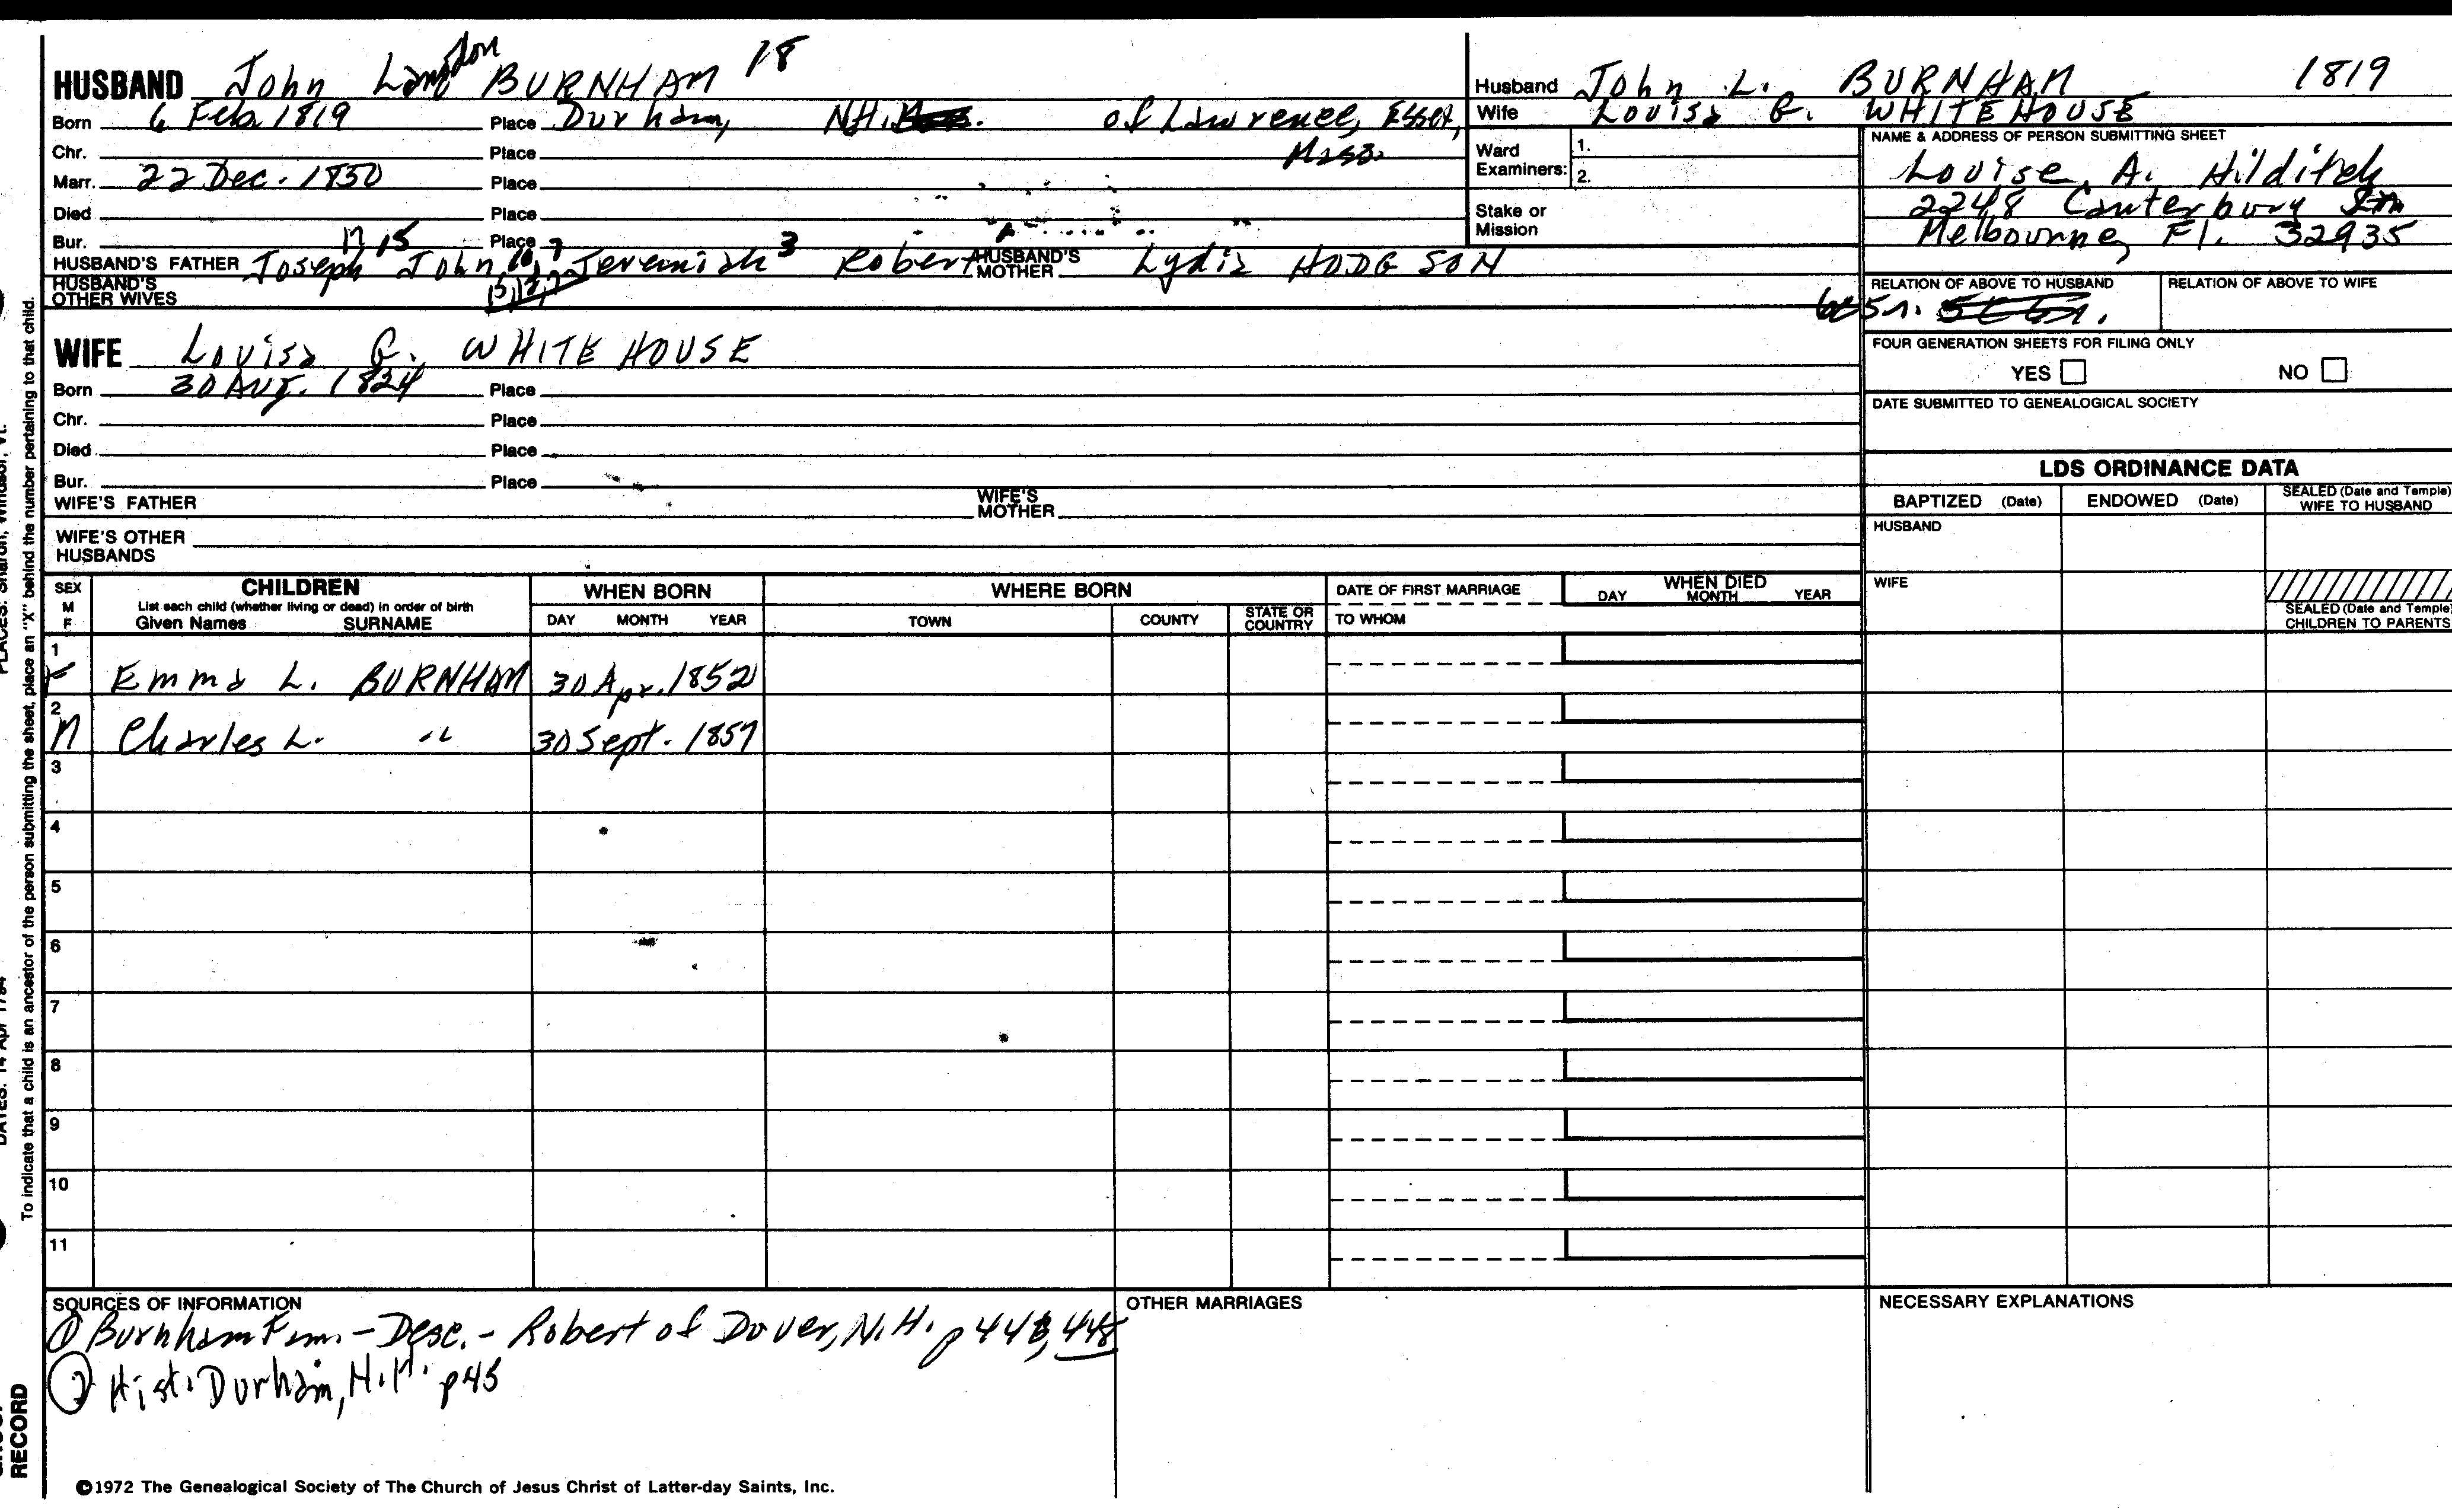 HUSBAND John Langdon BURNHAM 18
Born 6 Feb 1819 Place Durham, N.H. of Lawrence, Essex, Mass.
Chr. Place
Marr. 22 Dec. 1850 Place
Died Place
Bur. Place
17 15 16, 7 3
HUSBAND'S FATHER Joseph John, Jeremiah Robert HUSBAND'S MOTHER Lydia HODGSON
HUSBAND'S OTHER WIVES
WIFE Louisa G. WHITEHOUSE
Born 30 Aug. 1824 Place
Chr. Place
Died Place
Bur. Place
WIFE'S FATHER WIFE'S MOTHER
WIFE'S OTHER HUSBANDS
Husband John L. BURNHAM 1819
Wife Louisa G. WHITEHOUSE
Ward Examiners: 1. 2.
Stake or Mission
NAME & ADDRESS OF PERSON SUBMITTING SHEET
Louise A. Hilditch
2248 Canterbury Ln
Melbourne, Fl. 32935
RELATION OF ABOVE TO HUSBAND RELATION OF ABOVE TO WIFE
FOUR GENERATION SHEETS FOR FILING ONLY
YES NO
DATE SUBMITTED TO GENEALOGICAL SOCIETY
LDS ORDINANCE DATA
BAPTIZED (Date) ENDOWED (Date) SEALED (Date and Temple) WIFE TO HUSBAND
HUSBAND
WIFE
SEALED (Date and Temple) CHILDREN TO PARENTS
SEX M F CHILDREN WHEN BORN WHERE BORN DATE OF FIRST MARRIAGE WHEN DIED
List each child (whether living or dead) in order of birth
Given Names SURNAME DAY MONTH YEAR TOWN COUNTY STATE OR COUNTRY TO WHOM DAY MONTH YEAR
1 F Emma L. BURNHAM 30 Apr. 1852
2 M Charles L. " 30 Sept. 1857
3
4
5
6
7
8
9
10
11
SOURCES OF INFORMATION
① Burnham Fam. - Desc. - Robert of Dover, N.H. p 443, 448
② Hist. Durham, N.H. p45
OTHER MARRIAGES
NECESSARY EXPLANATIONS
©1972 The Genealogical Society of The Church of Jesus Christ of Latter-day Saints, Inc.
To indicate that a child is an ancestor of the person submitting the sheet, place an "X" behind the number pertaining to that child.
PLACES: Sharon, Windsor, Vt.
DATES: 14 Apr 1794
RECORD